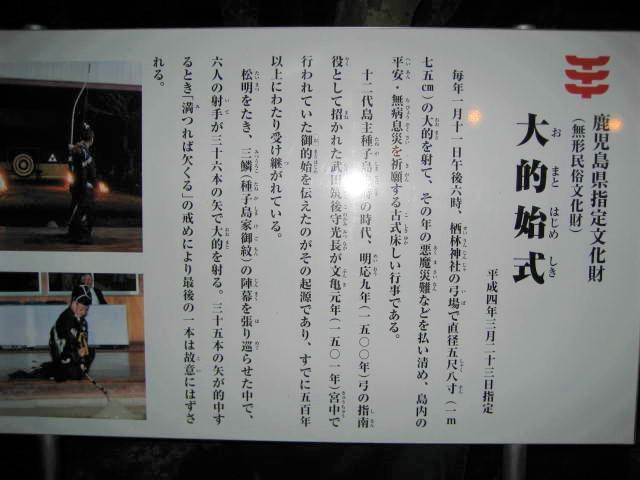 鹿児島県指定文化財
(無形民俗文化財)
大的始式
おおまとはじめしき
平成四年三月二十三日指定
毎年一月十一日午後六時、栖林神社の弓場で直径五尺八寸(一m
七五cm)の大的を射て、その年の悪魔災難などを払い清め、島内の
平安・無病息災を祈願する古式床しい行事である。
十二代島主種子島
の時代、明応九年(一五〇〇年)弓の指南
役として招かれた武田筑後守光長が文亀元年(一五〇一年)宮中で
行われていた御的始を伝えたのがその起源であり、すでに五百年
以上にわたり受け継がれている。
松明をたき、三鱗(種子島家御紋)の陣幕を張り巡らせた中で、
六人の射手が三十六本の矢で大的を射る。三十五本の矢が的中す
るとき「満つれば欠くる」の戒めにより最後の一本は故意にはずさ
れる。